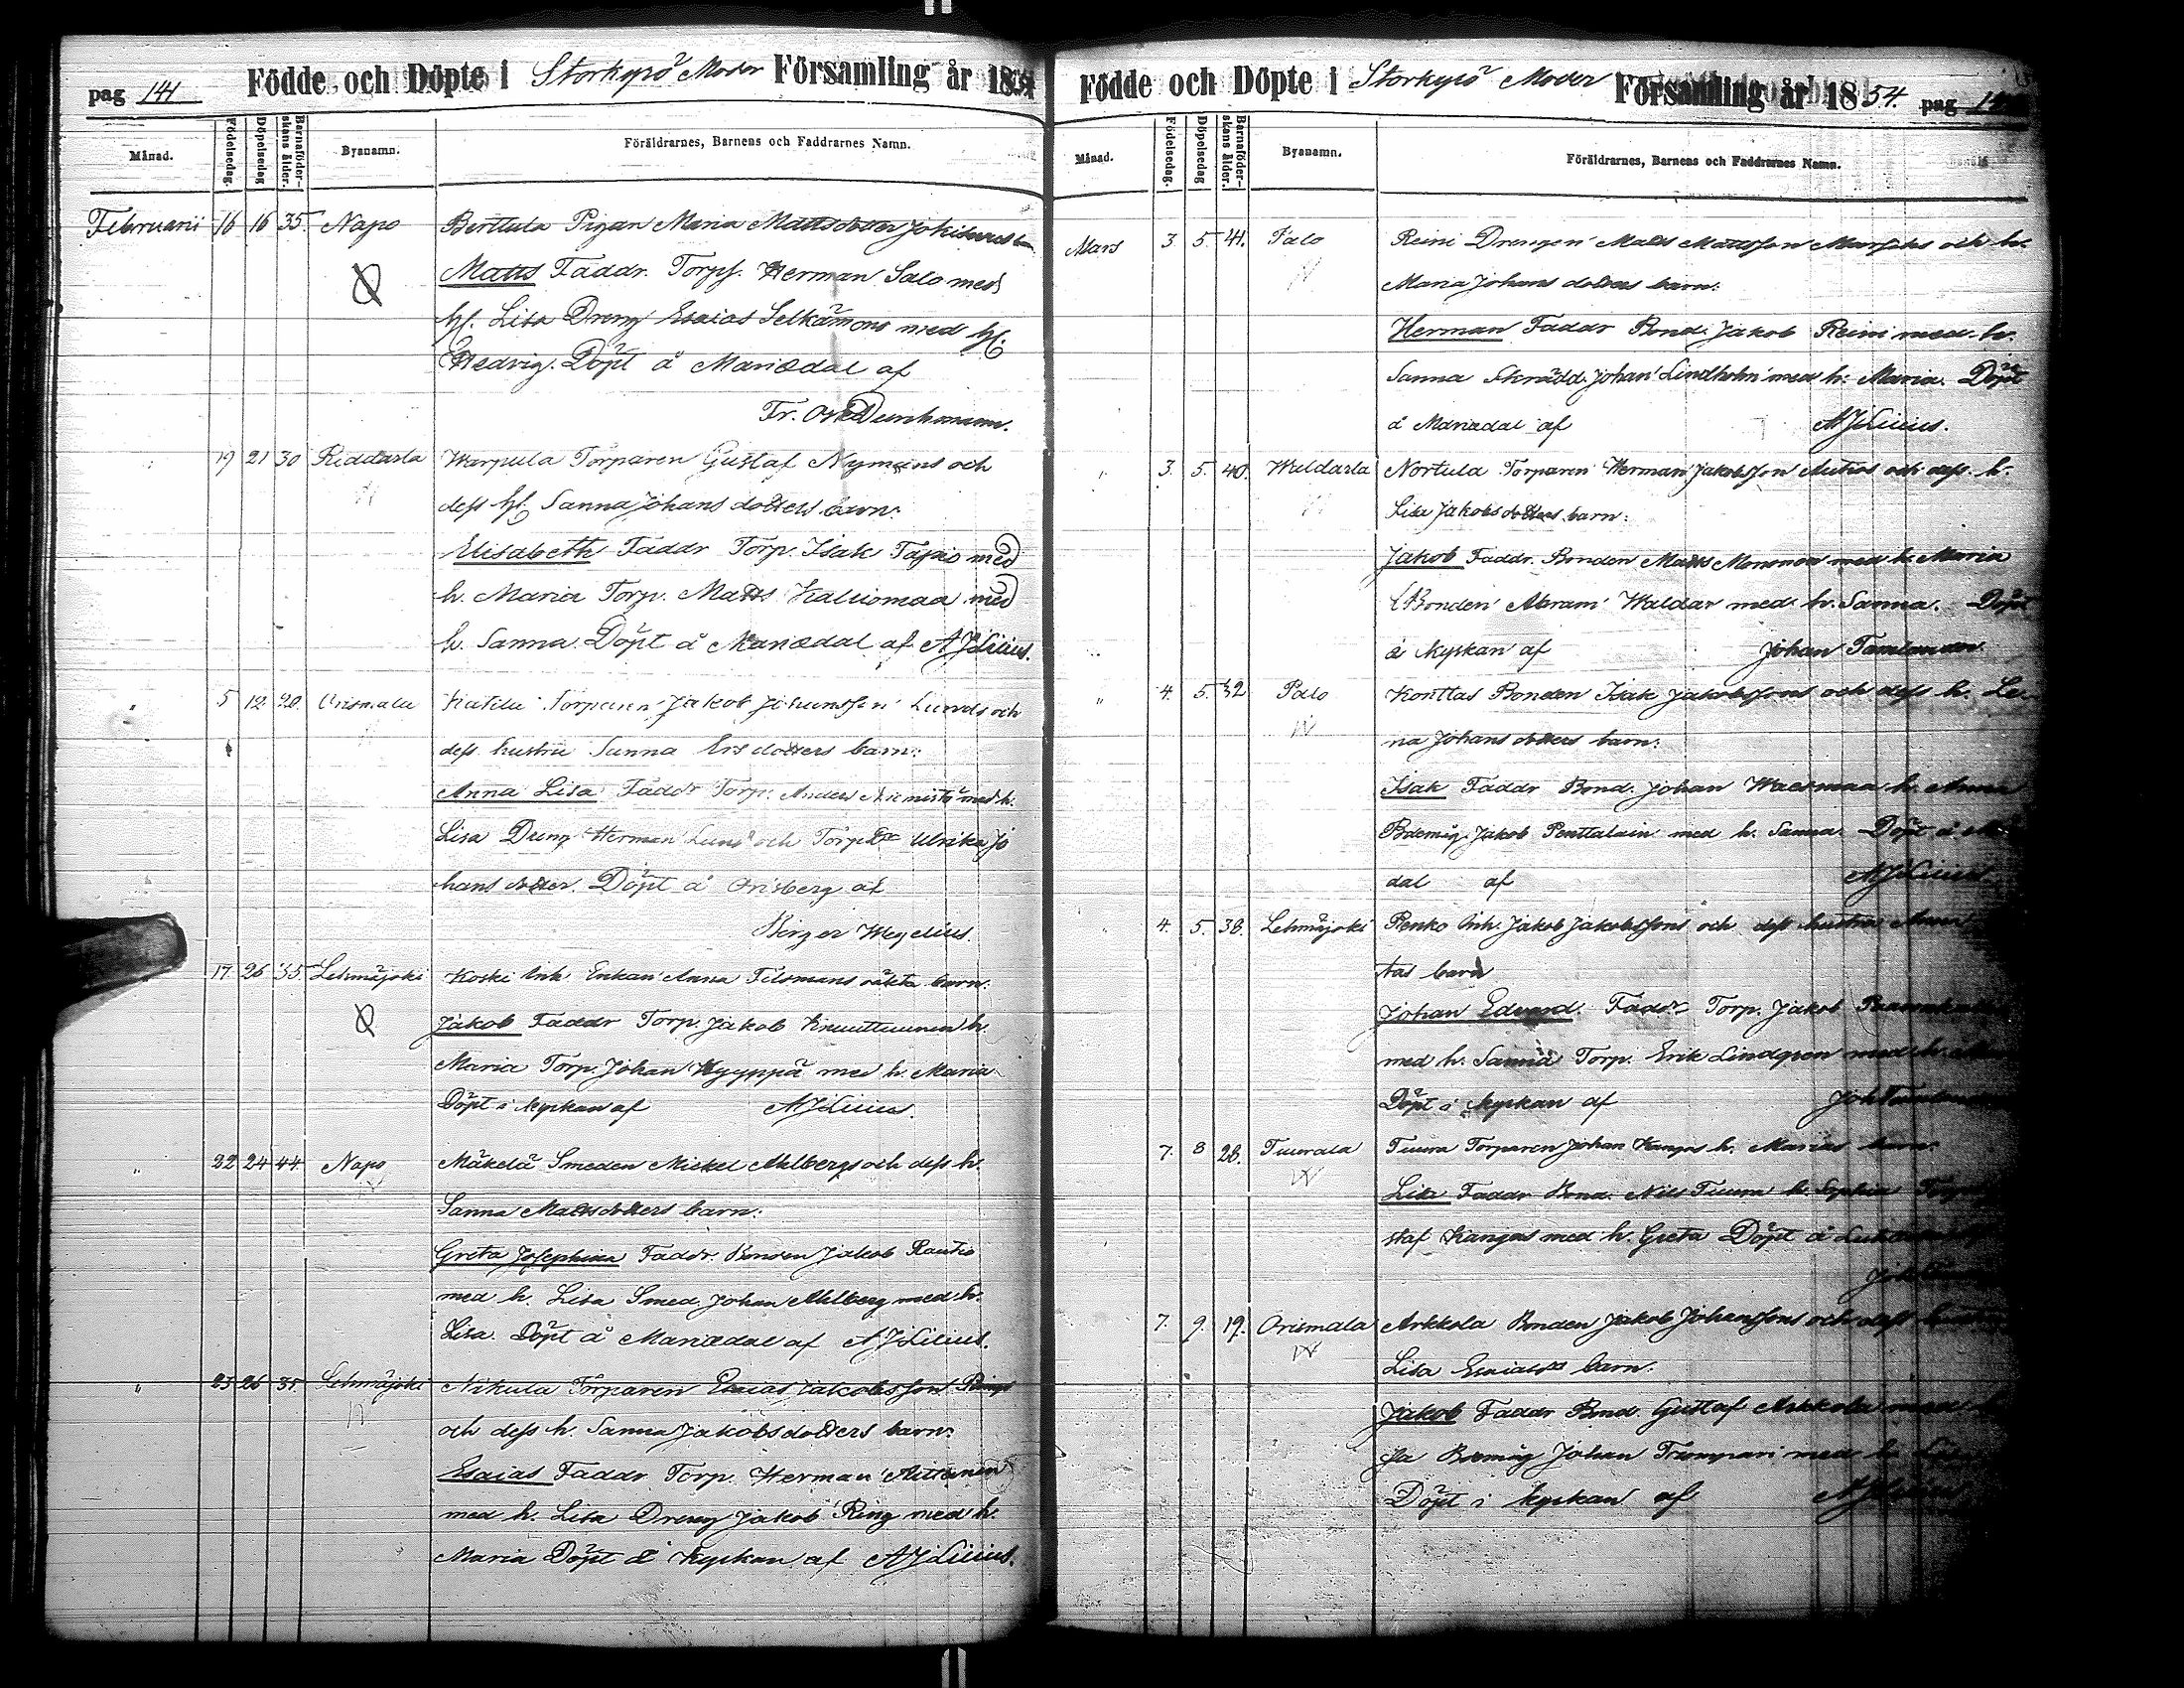 pag 141 Födde och Döpte i Storkyrö Moder Församling år 1854
Månad. Födelsedag. Döpelsedag Barnaföderskans ålder. Bysnamn. Föräldrarnes, Barnens och Faddrarnes Namn.
Februarii 16 16 35. Napo Berttula Pigan Maria Mattsdotter
Matts Faddr. Torp. Herman Salo med
hf. Lisa Dreng Esaias Selkämons med hf.
Hedvig. Döpt å Mariædal af
Fr. Osk. Durchmann.
19 21 30 Riddarla Warpula Torparen Gustaf Nymans och
dess hf. Sanna Johans dotters barn:
Elisabeth Faddr Torp. Isak Tapio med
h. Maria Torp. Matts Kalliomaa med
h. Sanna. Döpt å Mariædal af A J Lilius.
" 5 12 20. Orismala Katila Torparen Jakob Johansson Lunds och
dess hustru Sanna Ers dotters barn:
Anna Lisa Faddr Torp. Anders med h.
Lisa Dreng Herman Lund och Ulrika Jo
hans dotter. Döpt å Orisberg af
Birger Wegelius.
17. 26 35 Lehmäjoki Koski Inh. Enkan Anna Tilsmans oäkta barn.
Jakob Faddr Torp. Jakob Knuuttunen h.
Maria Torp. Johan Hyyppä med h. Maria
Döpt i kyrkan af A J Lilius.
" 22 24 44. Napo Mäkelä Smeden Mickel Ahlbergs och dess h.
Sanna Mattsdotters barn:
Greta Josephina Faddr. Bonden Jakob Rautio
med h. Lisa Smed. Johan Ahlberg med h.
Lisa. Döpt å Mariædal af A J Lilius.
" 23 26 35. Lehmäjoki Nikula Torparen Esaias Jakobsson Rings
och dess h. Sanna Jakobsdotters barn:
Esaias Faddr Torp. Herman Aittonen
med h. Lisa Dreng Jakob Ring med h.
Maria Döpt i kyrkan af A J Lilius.
Födde och Döpte i Storkyrö Moder Församling år 1854. pag
Månad. Födelsedag. Döpelsedag Barnaföderskans ålder. Bysnamn. Föräldrarnes, Barnens och Faddrarnes Namn.
Mars 3. 5. 41. Palo Reini Drengen Matts Mattsson och h.
Maria Johans dotters barn:
Herman Faddr Bond. Jakob Reini med h.
Sanna Skrädd. Johan Lindholm med h. Maria. Döpt
å Mariædal af A J Lilius.
" 3. 5. 40. Waldarla Nortula Torparen Herman Jakobsson och dess h.
Lisa Jakobsdotters barn:
Jakob Faddr. Bonden Matts Mononen med h. Maria
Bonden Abram Waldar med h. Sanna. Döpt
å kyrkan af Johan Tamlander
" 4. 5. 32 Palo Konttas Bonden Isak Jakobssons och dess h. Le
na Johans dotters barn:
Isak Faddr Bond. Johan h. Anna
Bdemåg. Jakob Penttalain med h. Sanna. Döpt å
dal af A J Lilius
4. 5. 38. Lehmäjoki Renko Inh. Jakob Jakobssons och dess hustru
tas barn
Johan Edvard. Faddr Torp. Jakob
med h. Sanna Torp. Erik Lindgren med h.
Döpt i kyrkan af Joh
7. 8 28. Tuurala Tuura Torparen Johan Kangas h. Marias barn
Lisa Faddr Bond. Nils Tuura h. Sophia
staf Kangas med h. Greta Döpt å
Joh
7. 9. 19. Orismala Arkkola Bonden Jakob Johanssons och dess
Lisa barn:
Jakob Faddr Bond. Gustaf Arkkola med
sa Bdemåg Johan Trumpari med h.
Döpt i kyrkan af A J Lilius